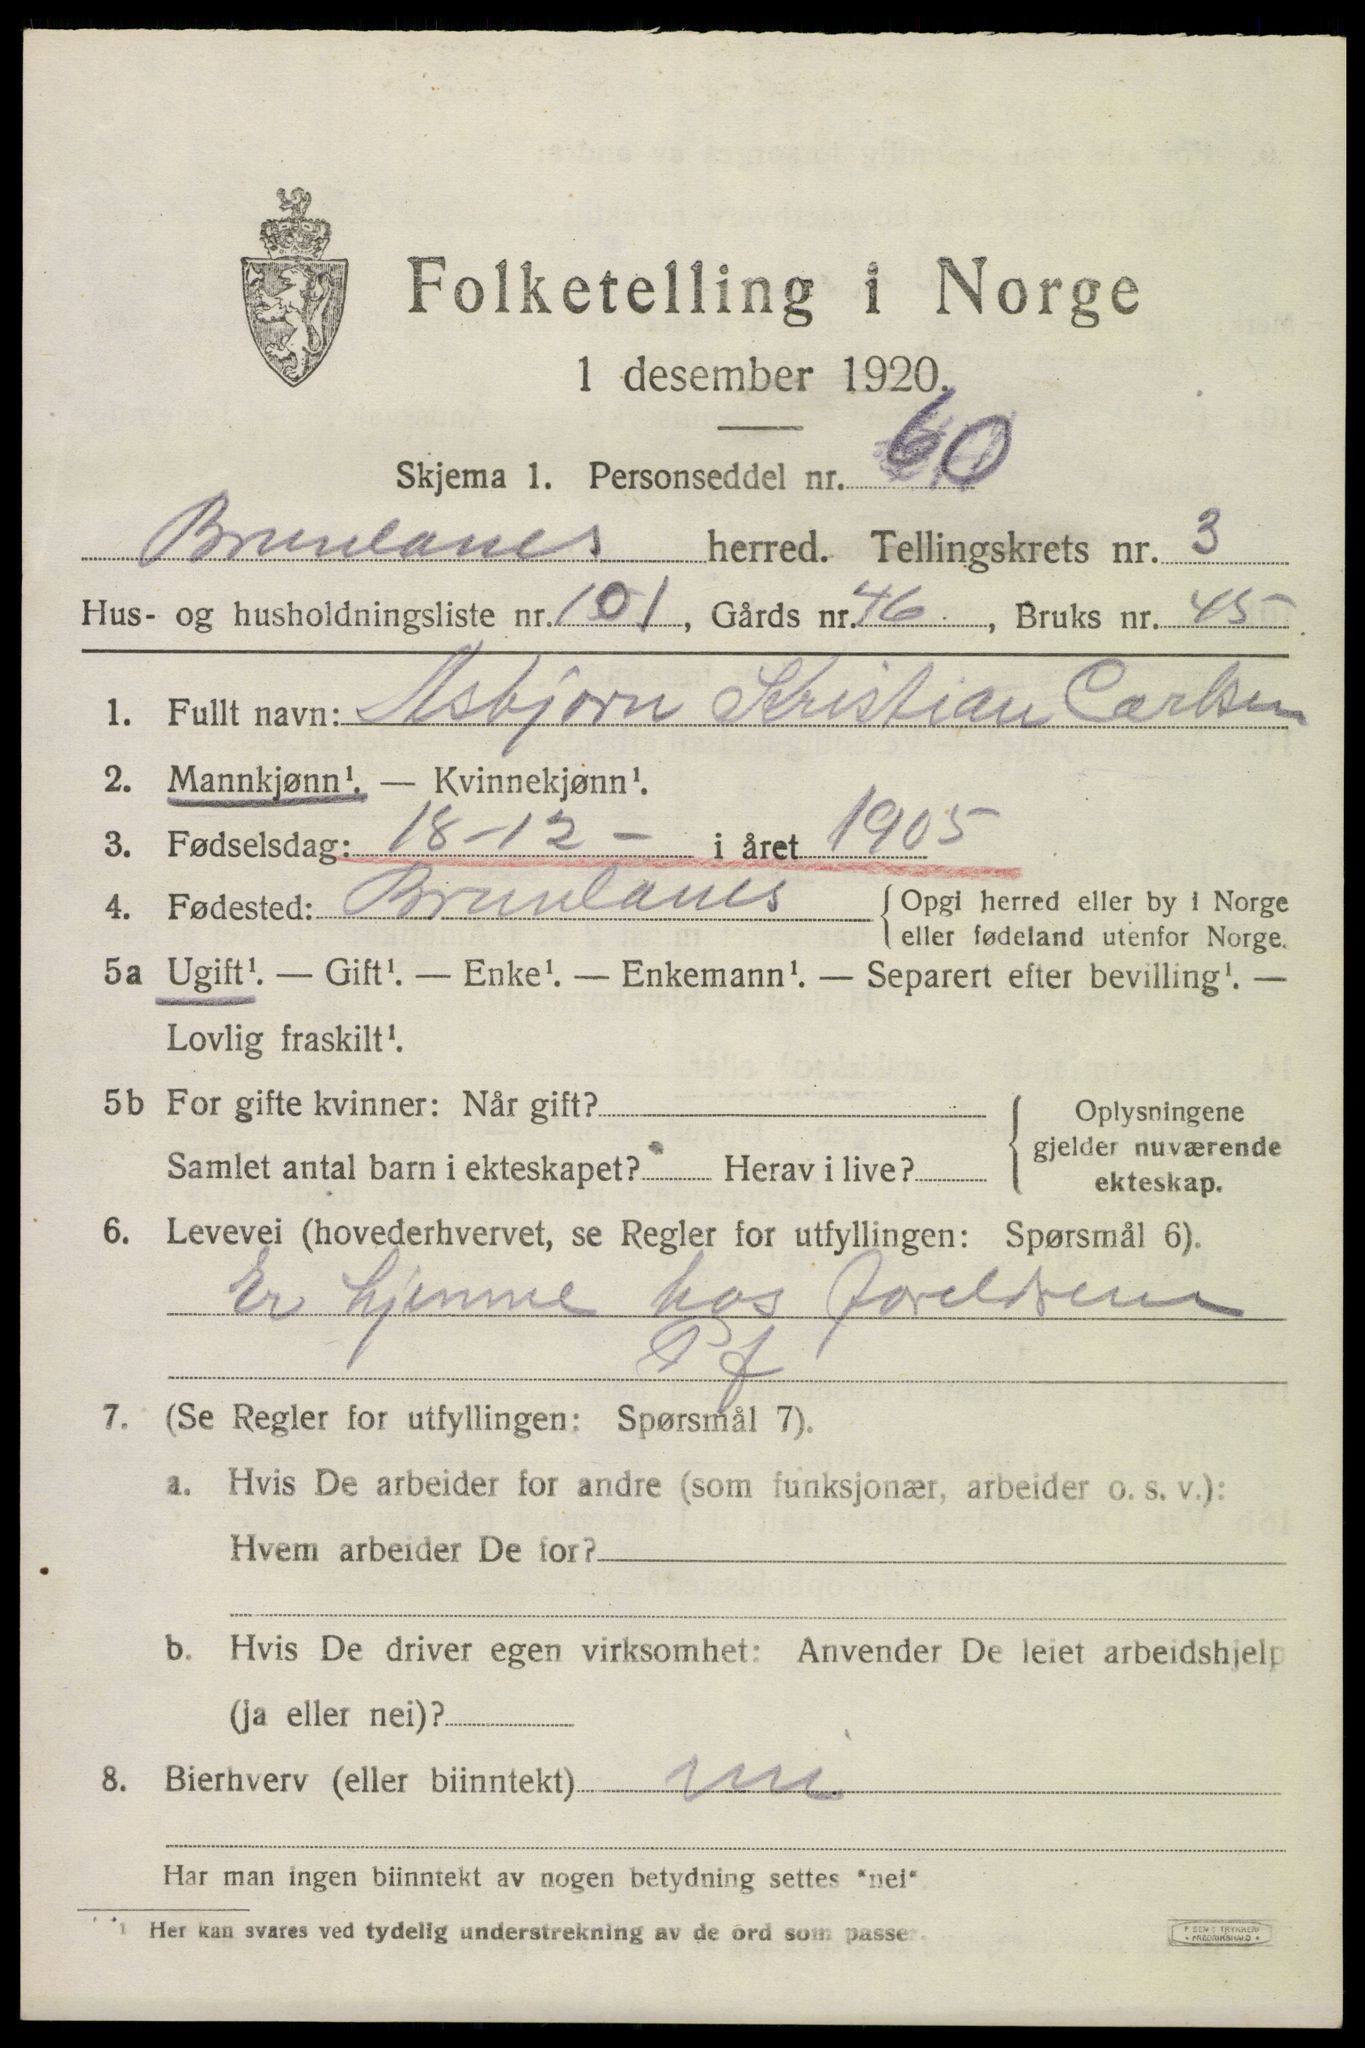 Folketelling i Norge
1 desember 1920.
Skjema 1. Personseddel nr. 60
Brunlanes herred. Tellingskrets nr. 3
Hus- og husholdningsliste nr. 101, Gårds nr. 46, Bruks nr. 45
1. Fullt navn: Asbjørn Kristian Carlsen
2. Mannkjønn¹. — Kvinnekjønn¹.
3. Fødselsdag: 18-12- i året 1905
4. Fødested: Brunlanes {Opgi herred eller by i Norge
eller fødeland utenfor Norge.
5a Ugift¹. — Gift¹. — Enke¹. — Enkemann¹. — Separert efter bevilling¹. —
Lovlig fraskilt¹.
5b For gifte kvinner: Når gift?
Samlet antal barn i ekteskapet? Herav i live?
{Oplysningene
gjelder nuværende
ekteskap.
6. Levevei (hovederhvervet, se Regler for utfyllingen: Spørsmål 6).
Er hjemme hos foreldrene
Pf
7. (Se Regler for utfyllingen: Spørsmål 7).
a. Hvis De arbeider for andre (som funksjonær, arbeider o. s. v.):
Hvem arbeider De for?
b. Hvis De driver egen virksomhet: Anvender De leiet arbeidshjelp
(ja eller nei)?
8. Bierhverv (eller biinntekt) nei
Har man ingen biinntekt av nogen betydning settes "nei"
¹ Her kan svares ved tydelig understrekning av de ord som passer.